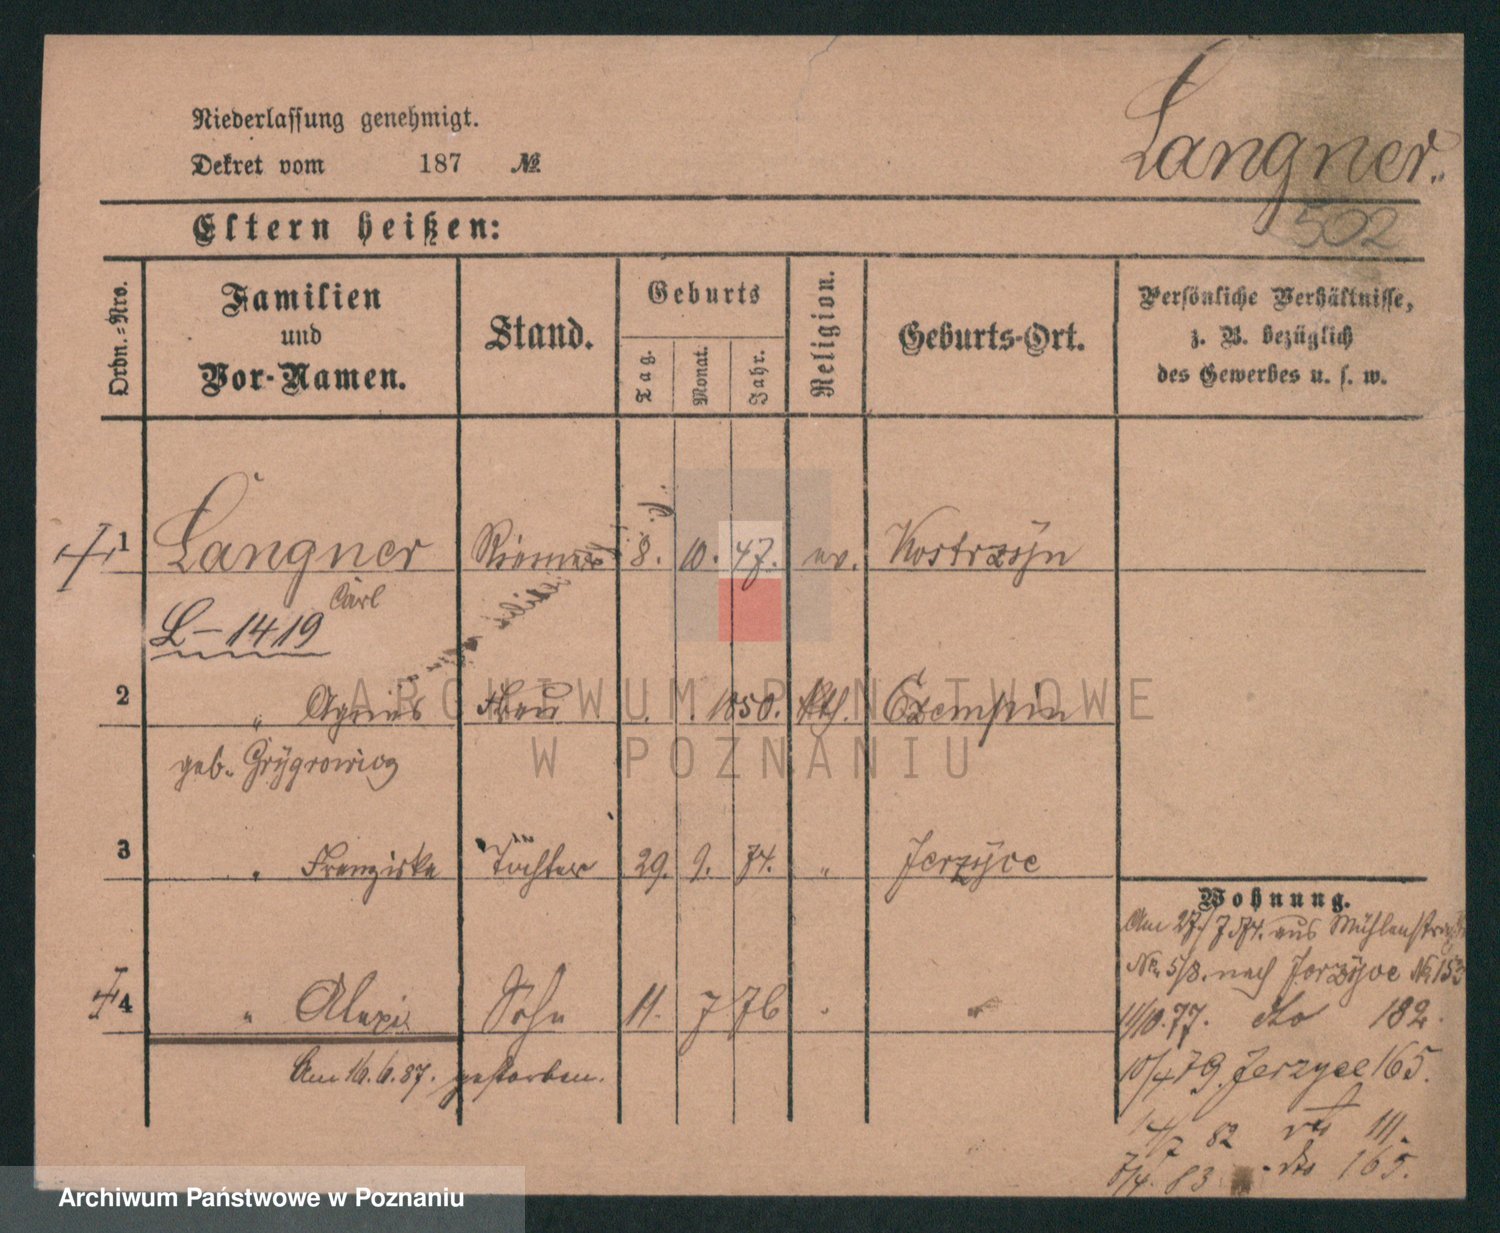 Niederlassung genehmigt.
Dekret vom 187 №
Langner.
502
Eltern heißen:
Ordn.-Nro.
Familien
und
Vor-Namen.
Stand.
Geburts
Tag.
Monat.
Jahr.
Religion.
Geburts-Ort.
Persönliche Verhältnisse,
z. B. bezüglich
des Gewerbes u. s. w.
1 Langner 8. 10. 47. ev. Kostrzyn
Carl
L-1419
2 " Agnes Frau 1850. kth. Czempin
geb. Grÿgrowicz
3 " Franziska Tochter 29. 9. 74. " Jerzÿce
4 " Alexi Sohn 11. 7 76 "
Am 16.6.87. gestorben.
Wohnung.
Am 27/7 74. aus Mühlenstraße
№ 5/8. nach Jerzÿce № 153
11/10. 77. dto 182.
10/4 79. Jerzyce 165.
82 dto 111.
7/4. 83 dto 165.
ARCHIWUM PAŃSTWOWE
W POZNANIU
Archiwum Państwowe w Poznaniu